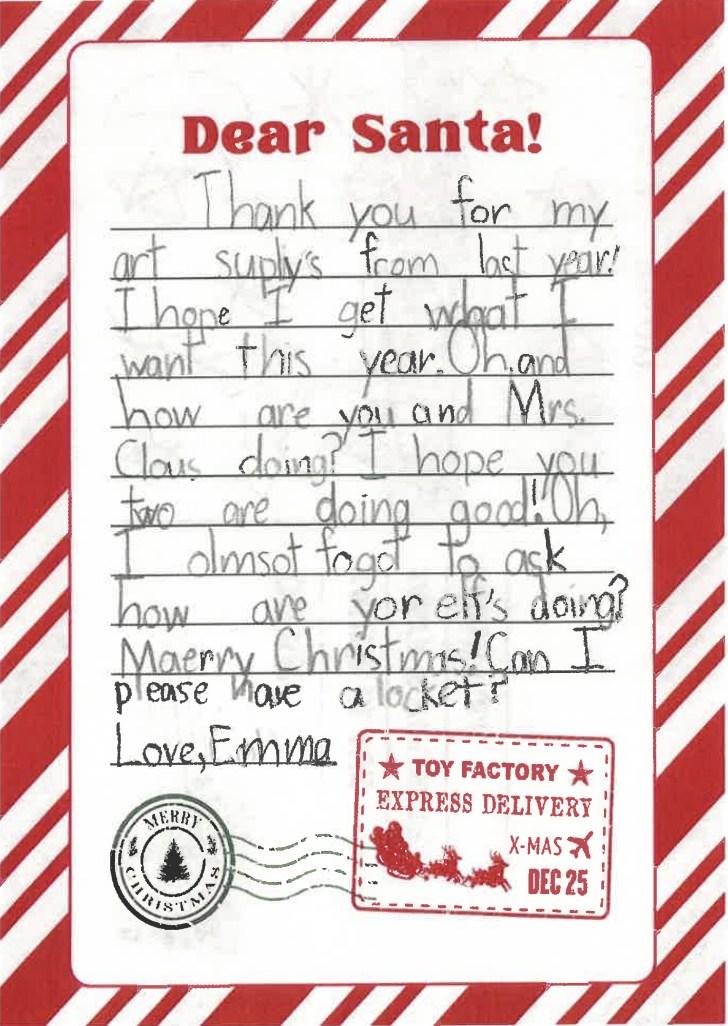 Dear Santa!
Thank you for my
art suply's from last year!
I hope I get what I
want this year. Oh, and
how are you and Mrs.
Claus doing? I hope you
two are doing good! Oh,
I olmsot fogot to ask
how are yor elf's doing?
Maerry Christmas! Can I
please have a locket?
Love, Emma
TOY FACTORY
EXPRESS DELIVERY
X-MAS
DEC 25
MERRY
CHRISTMAS